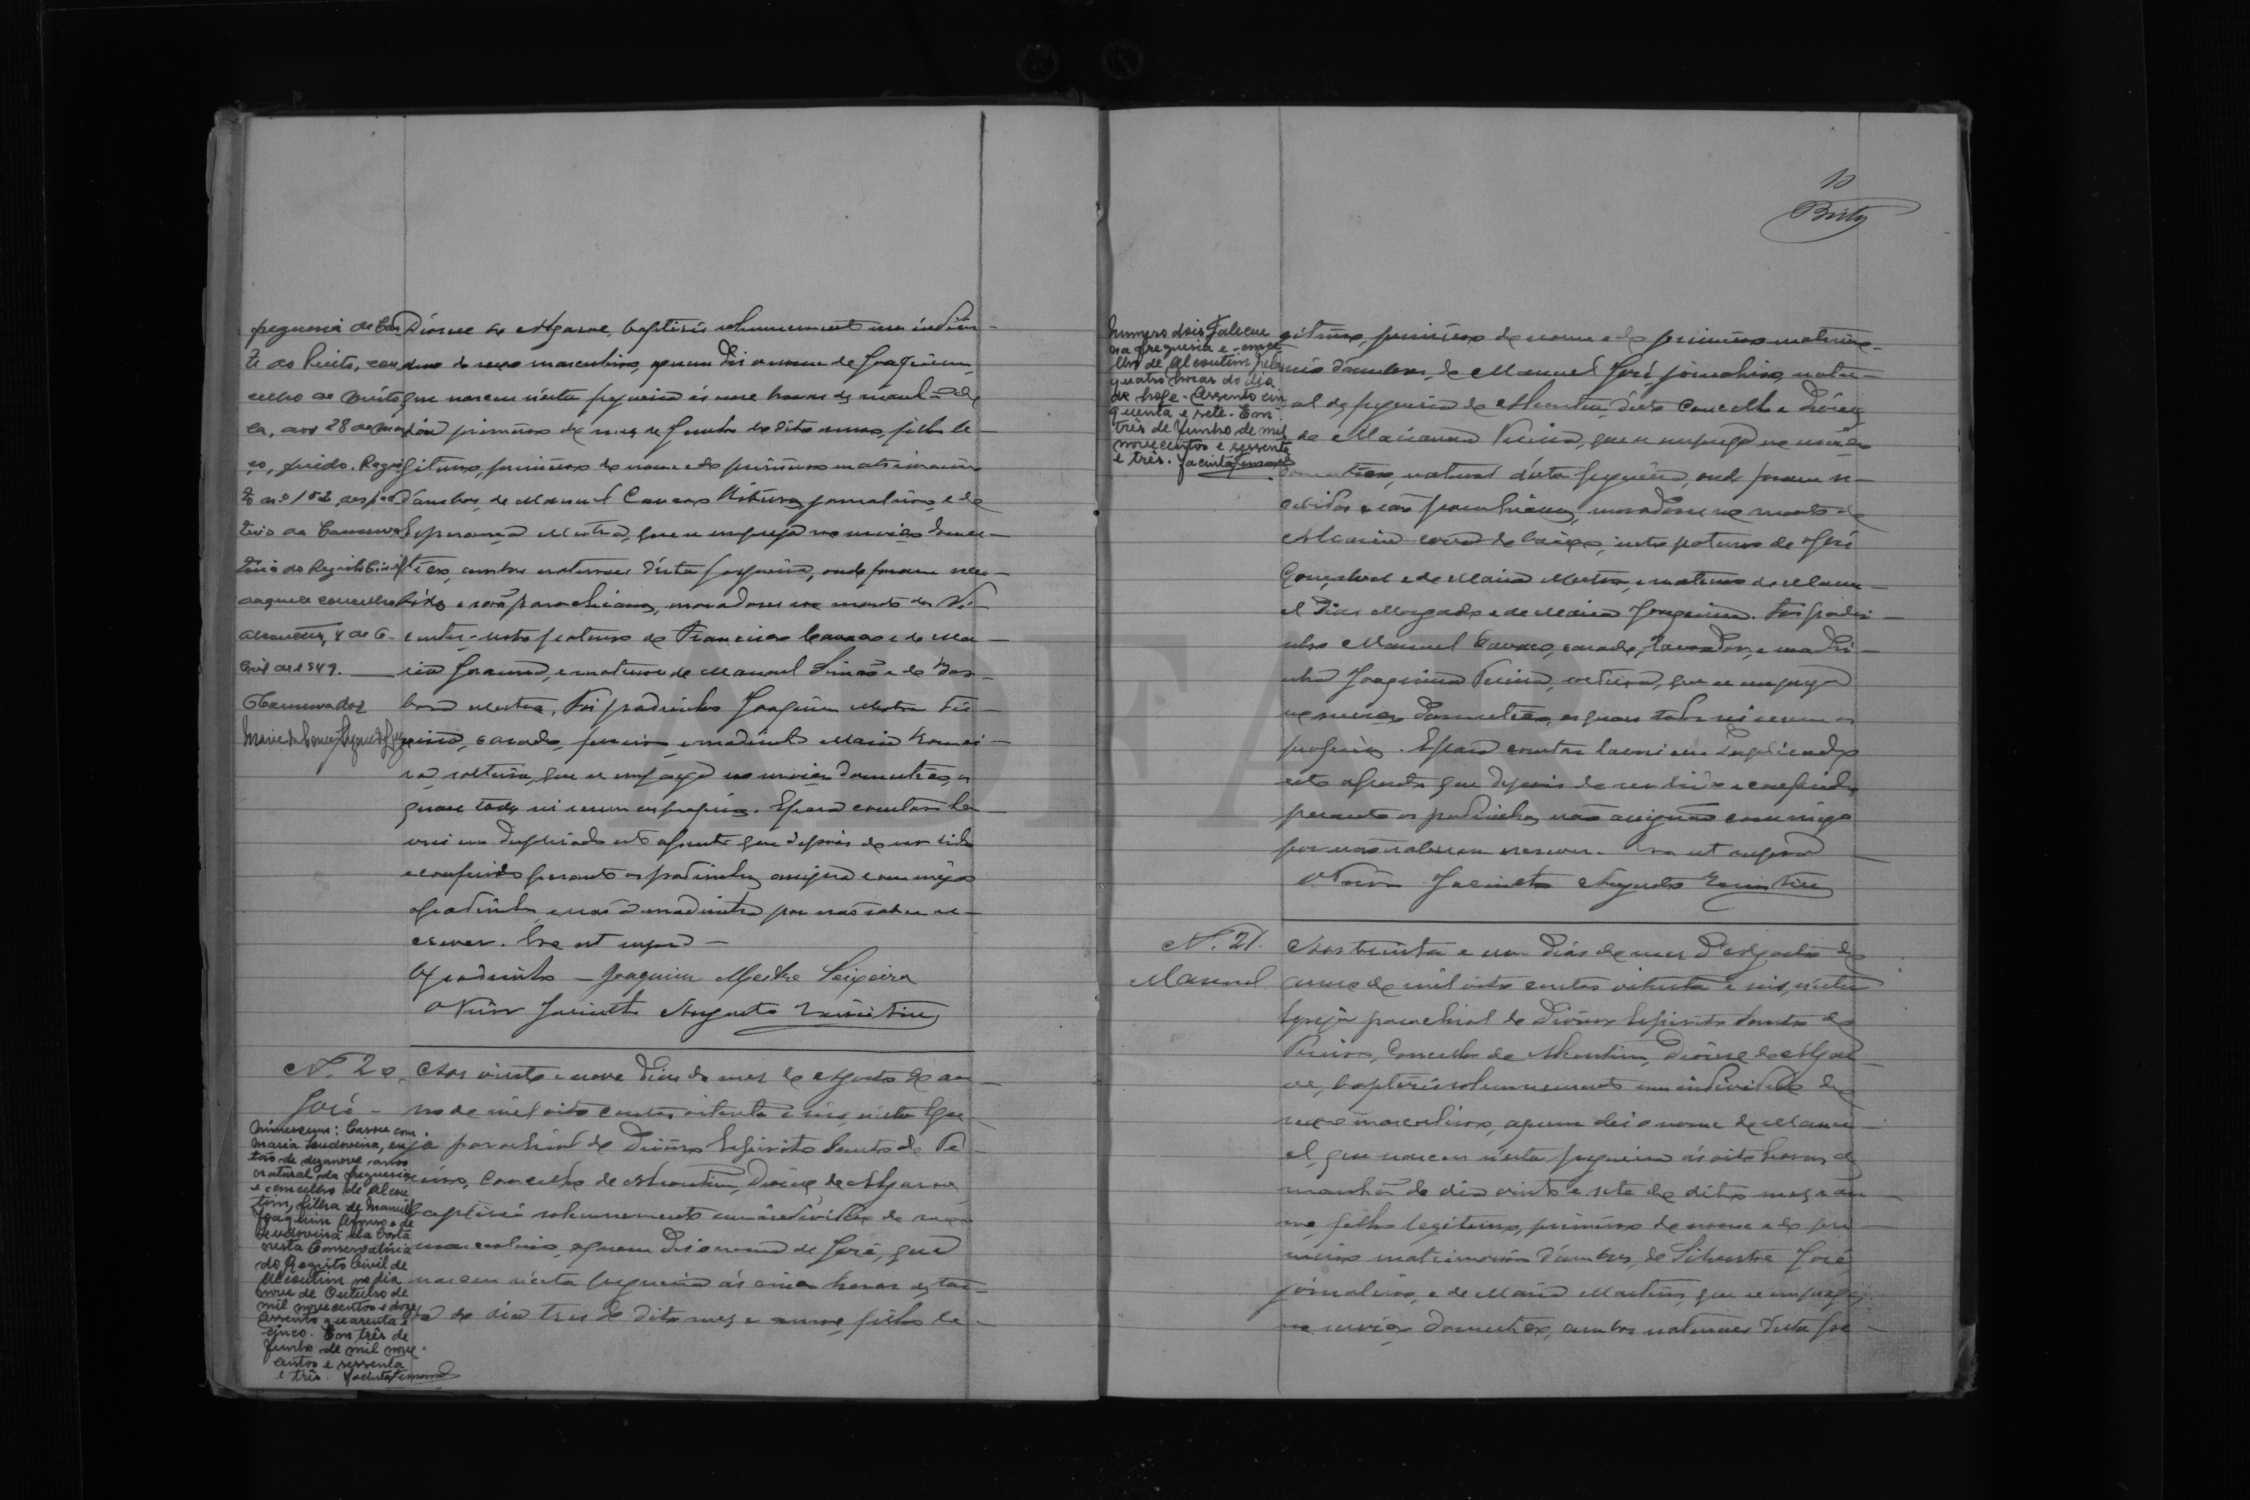 freguesia de
to do Pinto,
celho de
aos 28 de
Registo
to n.º 102,
aquele concelho
Alcoutim, 8 de
bril de 1949.
O Conservador
Diocese do Algarve, baptisei solemnemente um indivi-
duo do sexo masculino, a quem dei o nome de Joaquim,
que nasceu n'esta freguesia ás onze horas da manhã do
dia primeiro do mez de Junho do dito anno, filho le-
gitimo, primeiro do nome e do primeiro matrimonio
d'ambos, de Manuel Cavaco jornaleiro, e de
Esperança Mestra, que se emprega no serviço domes-
tico, ambos naturaes d'esta freguesia, onde foram rece-
bidos e são parochianos, moradores no monte do Vi-
centes, neto paterno de Francisco Cavaco e de Ma-
ria Joaquina, e materno de Manuel Simão e de Bar-
bara Mestra. Foi padrinho Joaquim Mestre Tei-
xeira, casado, ferreiro e madrinha Maria
solteira, que se emprega no serviço domestico, os
quaes todos sei serem os proprios. E para constar la-
vrei em duplicado este assento que depois de ser lido
e conferido perante os padrinhos, assigna commigo
o padrinho, e não a madrinha por não saber es-
crever. Era ut supra
O padrinho – Joaquim Mestre Teixeira
O Prior Jacintho Augusto
N.º 20.
José –
Número um: Casou com
Maria Ludovina, en
tão de dezanove anos
natural da freguesia
e concelho de Alcou
tim, filha de Manuel
Joaquim Afonso e de
Ludovina da Costa
nesta Conservatória
do Registo Civil de
Alcoutim no dia
nove de Outubro de
mil novecentos e doze
Assento quarenta e
cinco. Em três de
Junho de mil nove
centos e sessenta
e três.
Aos vinte e nove dias do mez de Agosto do an-
no de mil oito centos oitenta e seis, n'esta Egre-
ja parochial do Divino Espirito Santo de Pe-
reiro, Concelho de Alcoutim, Diocese do Algarve
baptisei solemnemente um individuo do sexo
masculino, a quem dei o nome de José, que
nasceu n'esta freguesia ás cinco horas da tar-
de do dia tres do dito mez e anno, filho le-
10
Brito
Número dois: Faleceu
na freguesia e conce
lho de Alcoutim pelas
quatro horas do dia
de hoje. Assento cin
quenta e sete. Em
três de Junho de mil
novecentos e sessenta
e três.
gitimo, primeiro do nome e do primeiro matrimo-
nio d'ambos, de Manuel José, jornaleiro, natu-
ral da freguesia de Alcoutim, d'este Concelho e Diocese
e de Marianna Pereira, que se emprega no serviço
domestico, natural d'esta freguesia, onde foram re-
cebidos e são parochianos, moradores no monte de
Alcaria Cova de baixo, neto paterno de José
Gonçalves e de Maria Mestra, e materno de Manu-
el Dias Morgado e de Maria Joaquina. Foi padri-
nho Manuel Cavaco, casado, lavrador, e madri-
nha Joaquina Pereira, solteira, que se emprega
no serviço domestico, os quaes todos sei serem os
proprios. E para constar lavrei em duplicado
este assento que depois de ser lido e conferido
perante os padrinhos, não assignão commigo
por não saberem escrever. Era ut supra
O Prior Jacintho Augusto
N.º 21.
Manuel
Aos trinta e um dias do mez d'Agosto do
anno de mil oito centos oitenta e seis, n'esta
Egreja parochial do Divino Espirito Santo do
Pereiro, Concelho de Alcoutim, Diocese do Algar-
ve, baptisei solemnemente um individuo do
sexo masculino, a quem dei o nome de Manu-
el, que nasceu n'esta freguesia ás oito horas da
manhã do dia vinte e sete do dito mez e an-
no, filho legitimo, primeiro do nome e do pri-
meiro matrimonio d'ambos, de Silvestre José,
jornaleiro, e de Maria Martins, que se emprega
no serviço domestico, ambos naturaes d'esta fre-